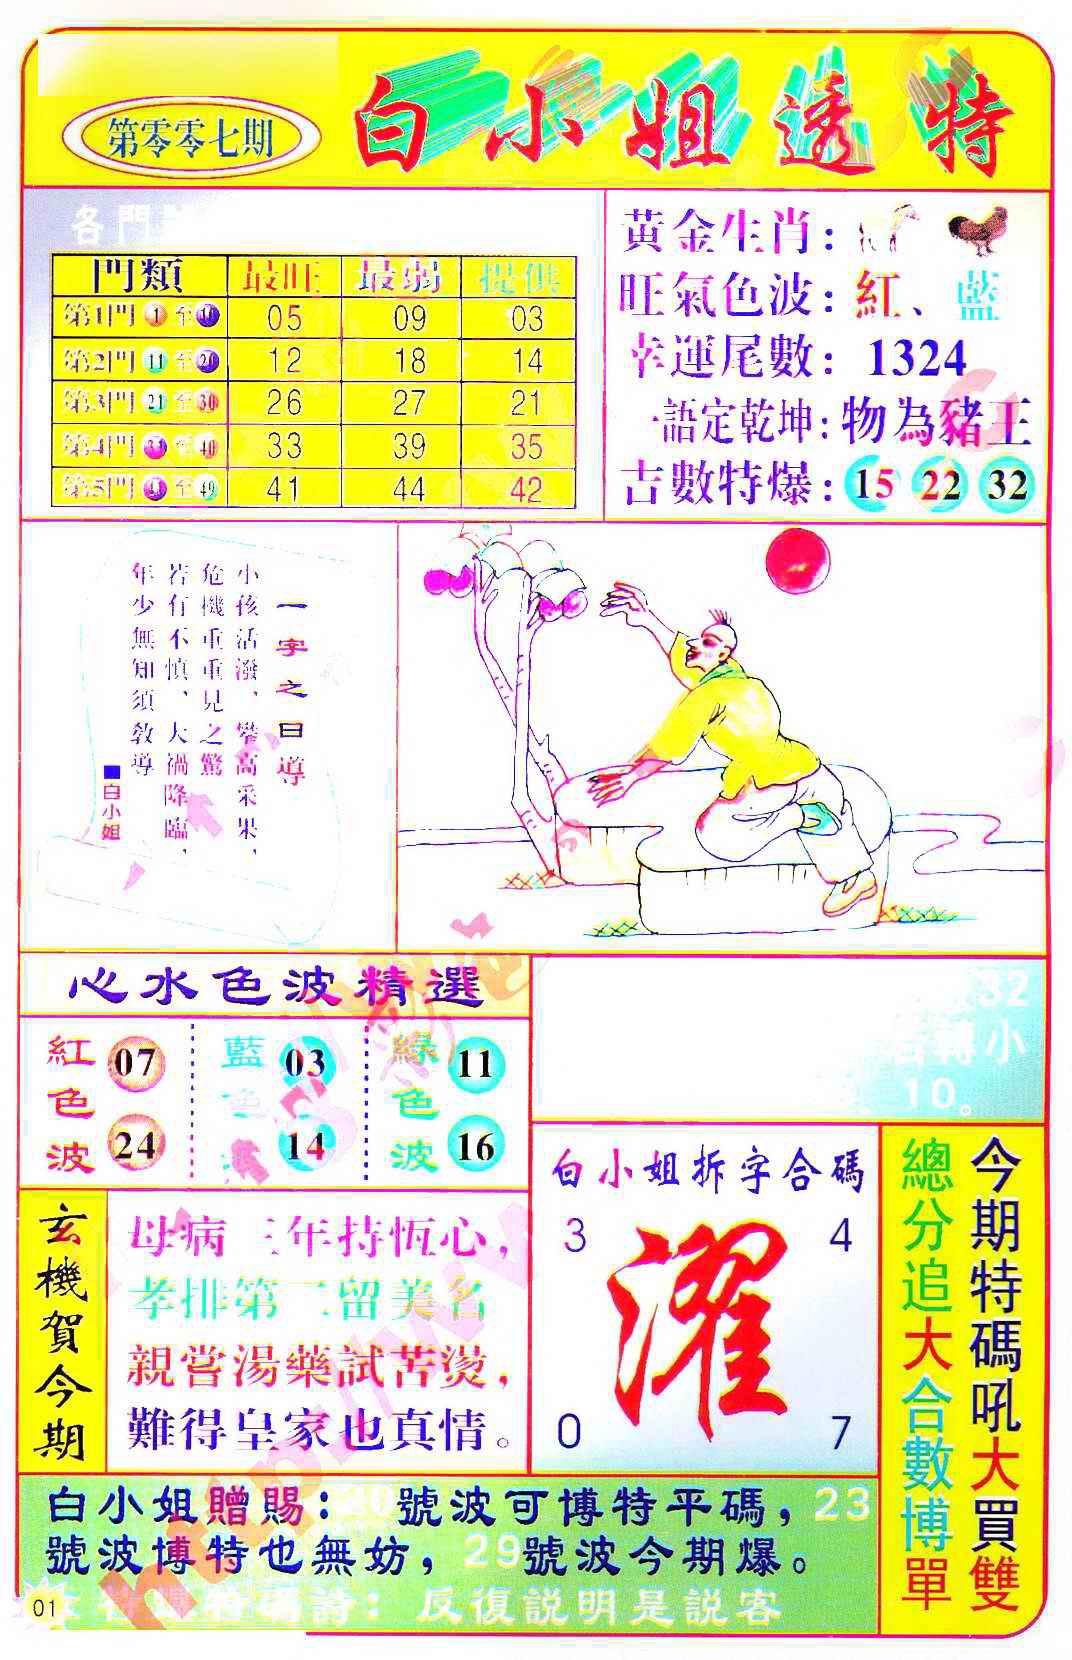 第零零七期
白小姐透特
各門
門類 最旺 最弱 提供
第1門 1 至 10 05 09 03
第2門 11 至 20 12 18 14
第3門 21 至 30 26 27 21
第4門 31 至 40 33 39 35
第5門 41 至 49 41 44 42
黃金生肖：
旺氣色波：紅、藍
幸運尾數：1324
一語定乾坤：物為豬王
古數特爆：15 22 32
一字之曰導
小孩活潑、攀高采果、
危機重重見之驚
若有不慎、大禍降臨、
年少無知須教導
■白小姐
心水色波精選
紅色波 07 24
藍色波 03 14
綠色波 11 16
32
小
10。
玄機賀今期
母病三年持恆心，
孝排第二留美名
親嘗湯藥試苦燙，
難得皇家也真情。
白小姐拆字合碼
3 4
濯
0 7
今期特碼吼大買雙
總分追大合數博單
白小姐贈賜：20號波可博特平碼，23
號波博特也無妨，29號波今期爆。
詩：反復説明是説客
01